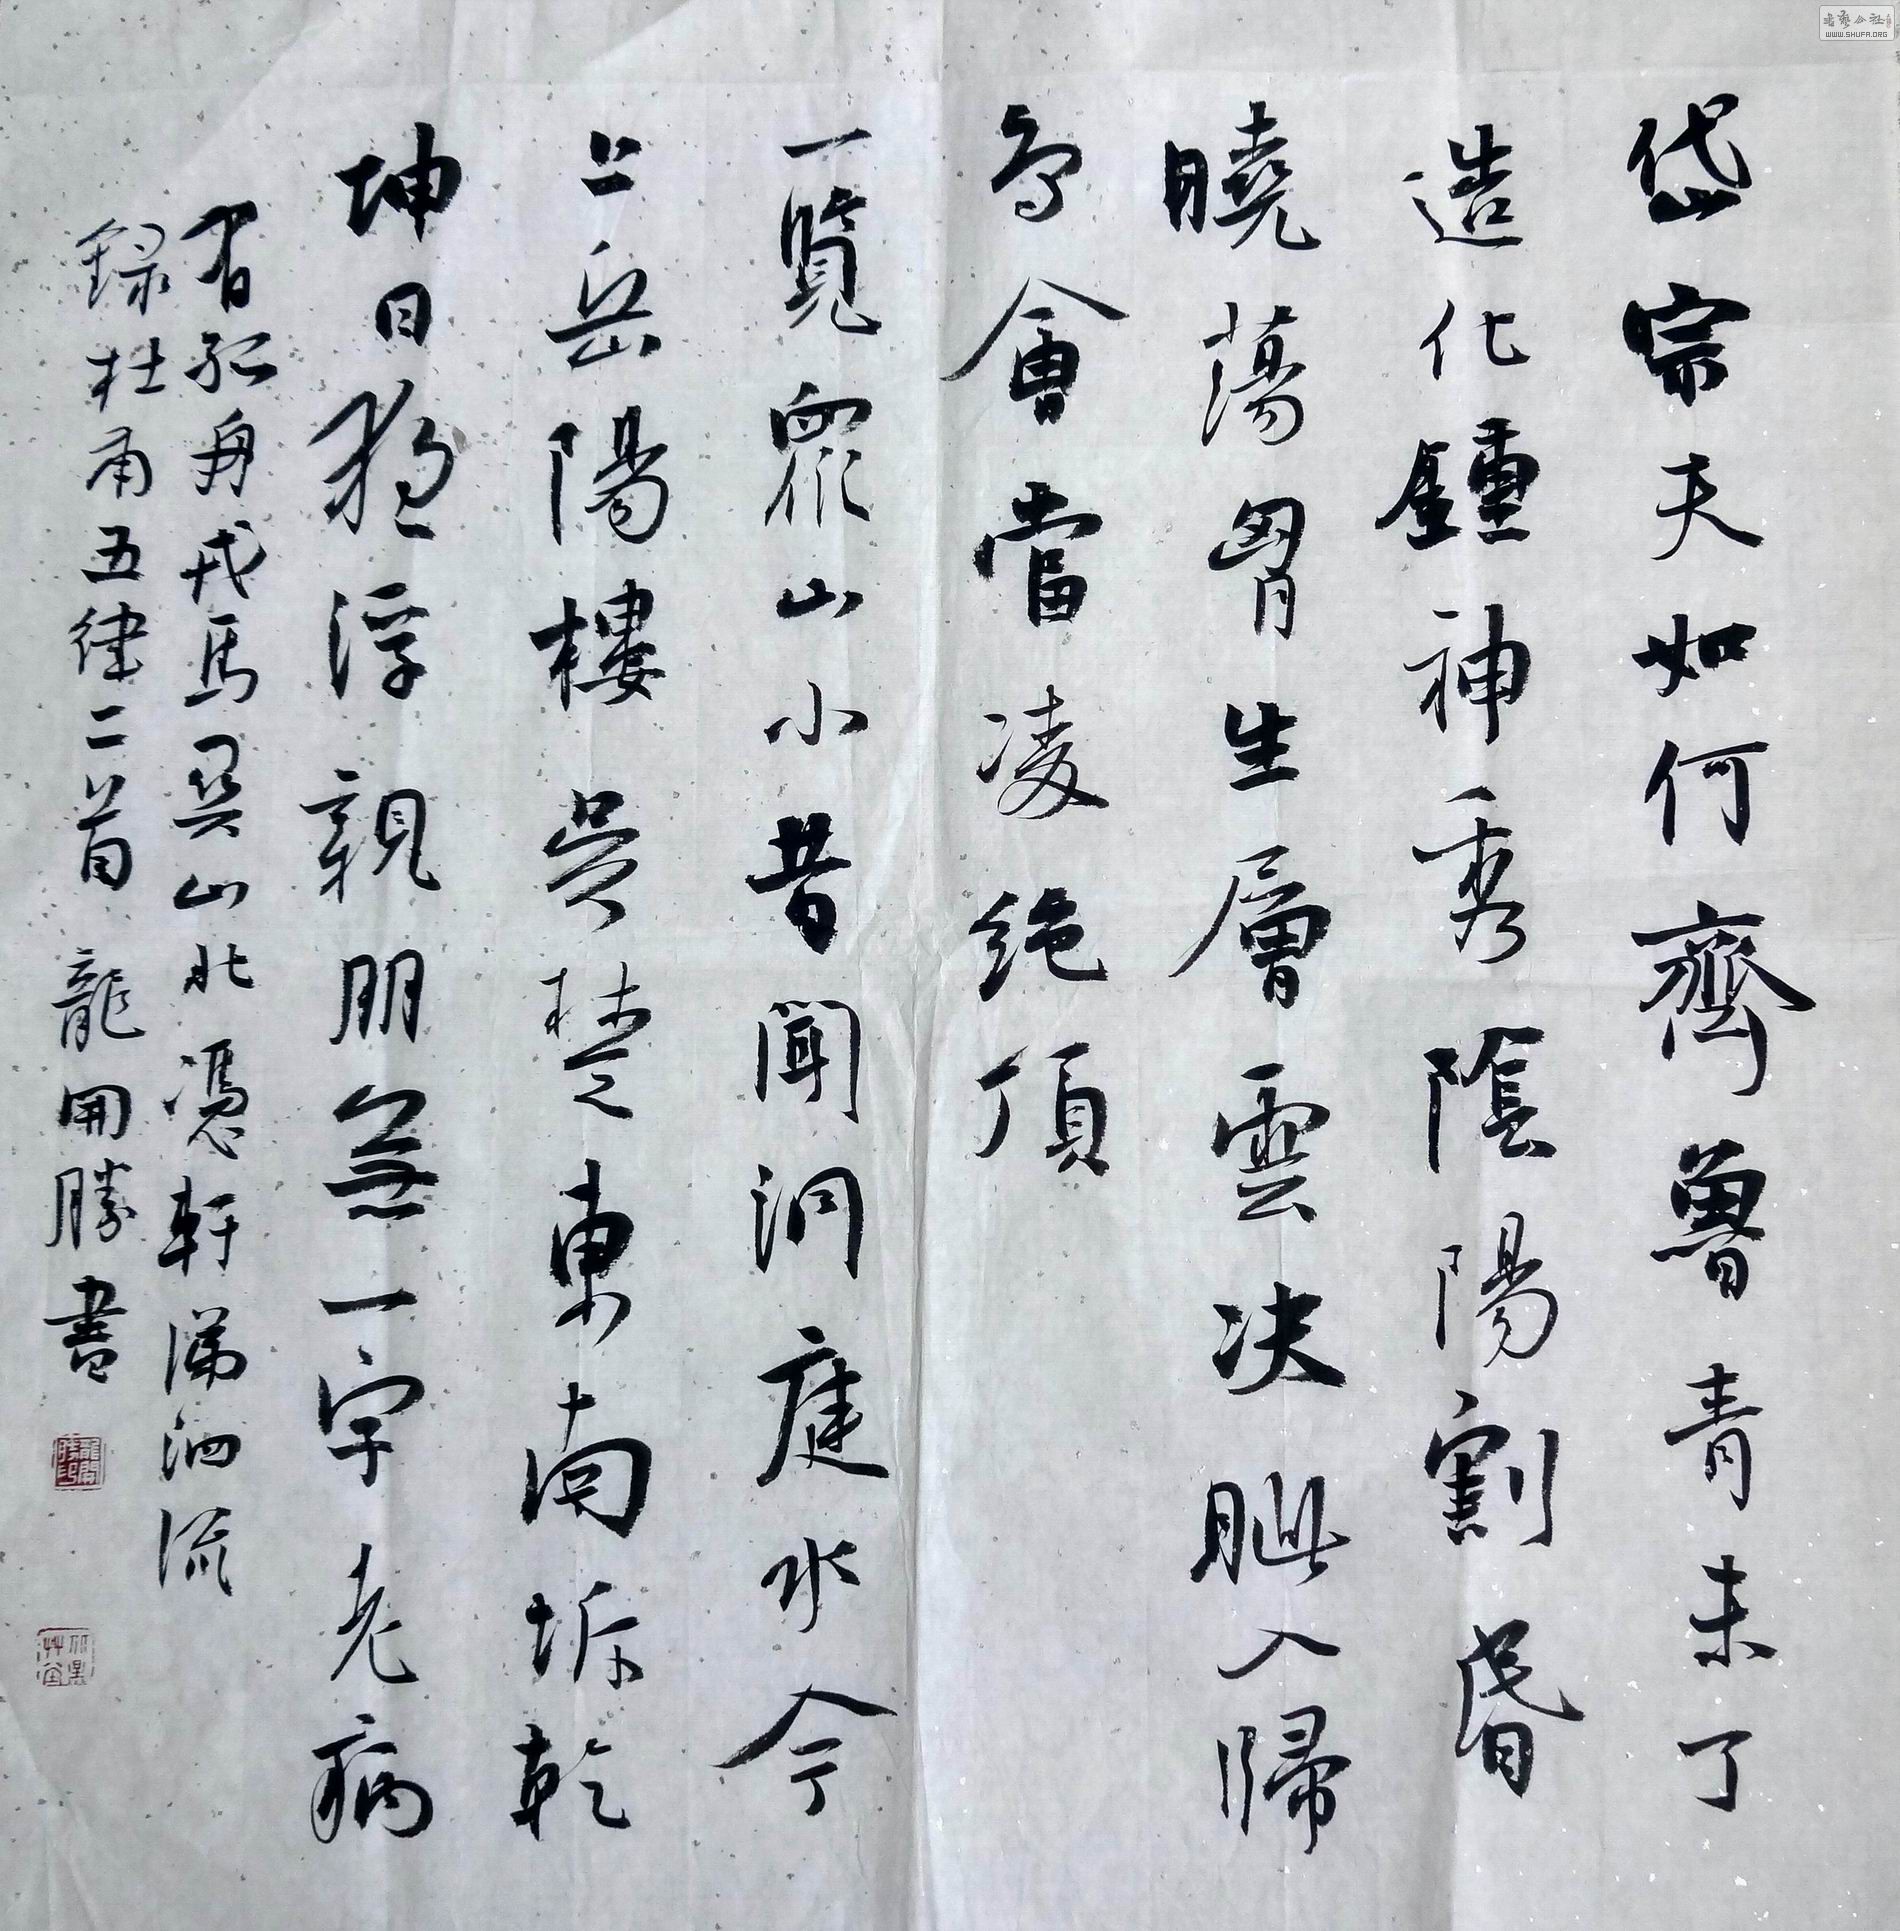 岱宗夫如何齊魯青未了
造化鍾神秀陰陽割昬
曉蕩胷生層雲决眦入歸
鳥會當凌絶頂
一覽眾山小昔聞洞庭水今
上岳陽樓吳楚東南坼乾
坤日夜浮親朋無一字老病
有孤舟戎馬關山北憑軒涕泗流
録杜甫五律二首 龍開勝書
龍開勝印
書藝公社
WWW.SHUFA.ORG